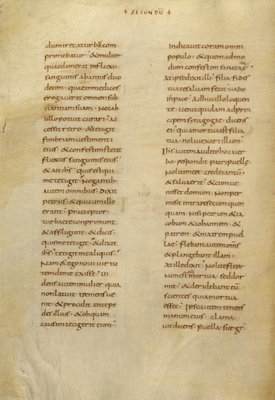 SECUNDU
dum iret a turbis com
primebatur. & mulier
quaedam erat in fluxu
sanguinis ab annis duo
decim. quae in medicos
erogauerat omnem sub
stantiam suam. nec ab
ullo potuit curari. ac
cessit retro. & tetigit
fimbriam uestimenti
eius. & confestim stetit
fluxus sanguinis eius
& ait ihs. quis est qui
me tetigit. Negantib;
autem omnibus. dixit
petrus. & qui cum illo
erant. praeceptor
turbae te conprimunt
& affligunt. & dicis
quis me tetigit. & dixit
ihs. tetigit me aliquis.
Nam & ego noui uirtu
tem de me exisse. Ui
dens autem mulier quia
non latuit. tremens ue
nit. & procidit ante pe
des illius. & ob quam
causam tetigerit eum
indicauit coram omni
populo. & quem admo
dum confestim sanata
At ipse dixit illi. filia fides
tua te saluam fecit. uade
in pace. Adhuc illo loquen
te. uenit quidam ad prin
cipem synagogae. dicens
ei. quia mortua est filia
tua. noli uexare illum.
Ihs autem audito hoc uer
bo. respondit patri puellae.
Noli timere. crede tantum
& salua erit. & cum ue
nisset domum. Non per
misit intrare secum quem
quam. Nisi petrum & ia
cobum & iohannem. &
patrem & matrem puel
lae. flebant autem omnes
& plangebant illam.
At ille dixit. Nolite flere.
Non est mortua. sed dor
mit. & deridebant eum
scientes quia mortua
esset. clama
uit dicens. puella surge.